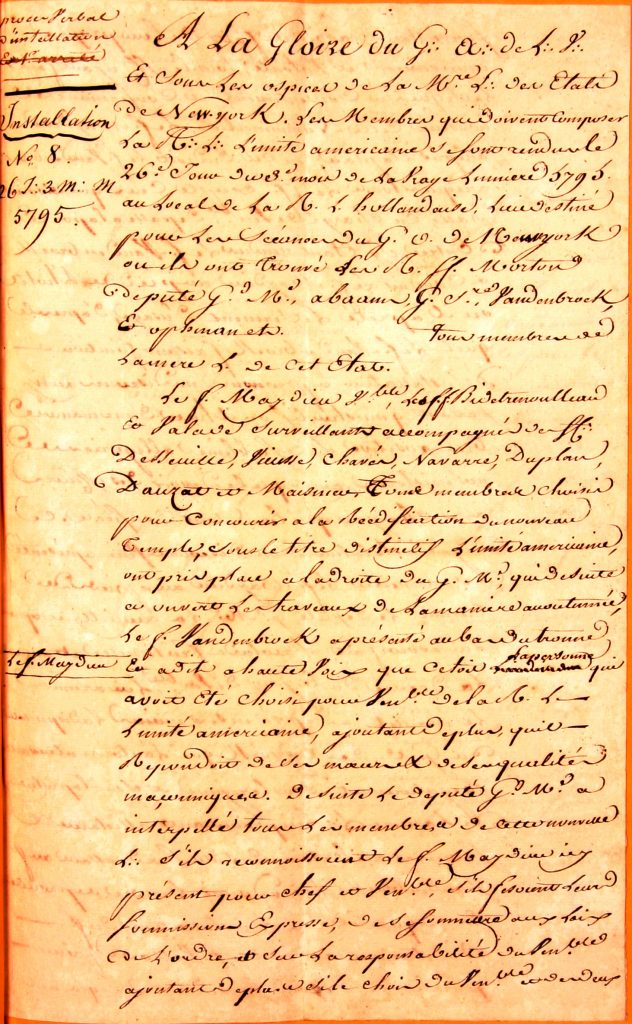 procès Verbal
d'installation
Installation
N.º 8.
26 J: 3 M: M
5795.
A La Gloire du G: A: de L: V:
Et sous les ospices de La M.re L: des Etats
de New-york. Les Membres qui doivent composer
La R: L: L'unité américaine se sont rendus le
26.e Jour du 3.e mois de La Raye Lumiere 5795.
au Local de La R. L. hollandaise, Lui destiné
pour les Séances du G. O. de Newyork
ou ils ont trouvé Les R. ff. Morton
Deputé G.d M.e, abaams, G. S.re, Vandenbroek,
& ophman etc. tous membres de
La mere L. de cet Etat.
Le f. Maydieu V.ble, Les ff. Bidetrenoulleau
& Palade Surveillants accompagné des ff:
Desseuille, Vieusse, Chavés, Navarre, Duplan,
Dauzat et Maisince, Tous membres choisis
pour Concourir a la Réédification du nouveau
Temple, sous le titre distinctif L'unité américaine,
ont pris place a la droite du G. M.e, qui desuite
a ouvert les travaux de La maniere accoutumée,
Le f. Vandenbroek a présenté au bas du tronne
Le f. Maydieu
Et a dit a haute Voix que cetoit la personne qui
avoit été choisi pour Ven.ble de la R. L.
L'unité américaine, ajoutant de plus, qu'il
Repondoit de ses mœurs & de ses qualités
maçonniques. desuite Le deputé G.d M.e a
interpellé tous Les membres de cette nouvelle
L: S'ils reconnoissoient Le f. Maydieu icy
présent pour chef et Ven.ble, s'ils fesoient Leur
Soumission Expresse, de se soumettre aux Loix
de L'ordre, et sur La responsabilité du Ven.ble
ajoutant de plus si le choix du Ven.ble et des deux